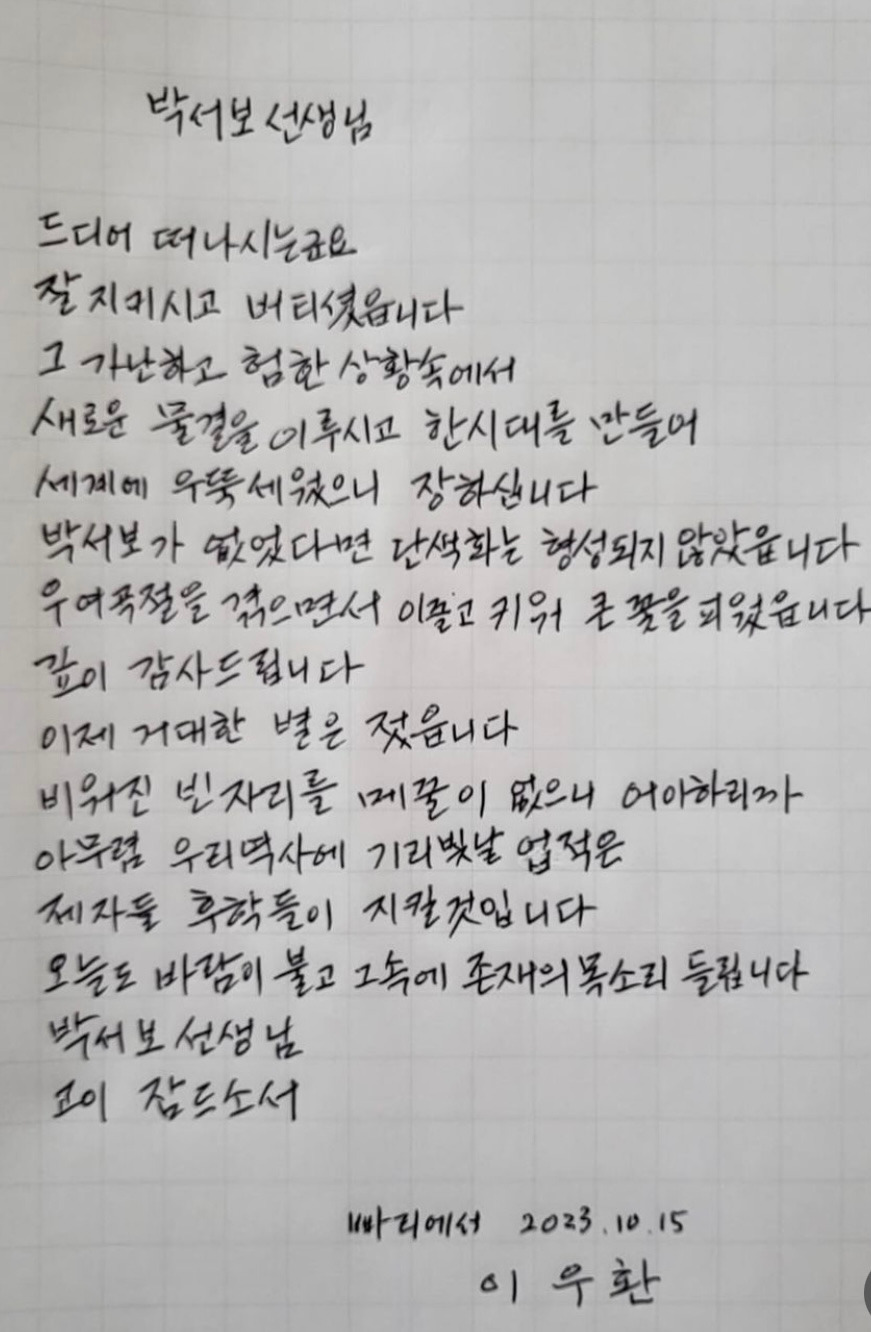 박서보 선생님
드디어 떠나시는균요
잘 지키시고 버티셨읍니다
그 가난하고 험한 상황속에서
새로운 물결을 이루시고 한시대를 만들어
세계에 우뚝세웠으니 장하십니다
박서보가 없었다면 단색화는 형성되지 않았읍니다
우여곡절을 겪으면서 이끌고 키워 큰 꽃을 피웠읍니다
깊이 감사드립니다
이제 거대한 별은 젔읍니다
비워진 빈자리를 메꿀이 없으니 어아하리까
아무렴 우리역사에 기리빛날 업적은
제자들 후학들이 지킬것입니다
오늘도 바람이 불고 그속에 존재의 목소리 들립니다
박서보 선생님
고이 잠드소서
빠리에서 2023.10.15
이우환